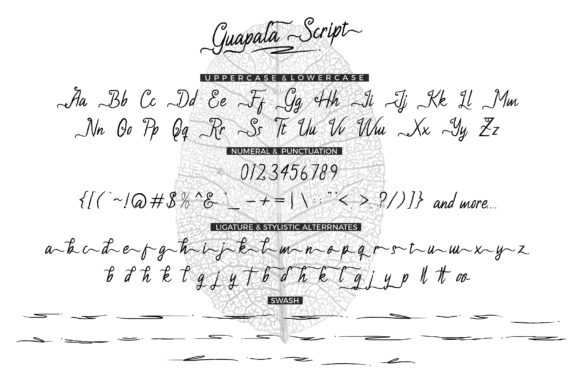 Guapala Script
UPPERCASE & LOWERCASE
Aa Bb Cc Dd Ee Ff Gg Hh Ii Jj Kk Ll Mm
Nn Oo Pp Qq Rr Ss Tt Uu Vv Ww Xx Yy Zz
NUMERAL & PUNCTUATION
0123456789
{[(`~!@#$%^&*_-+=|\:;"'<>?/)]} and more....
LIGATURE & STYLISTIC ALTERRNATES
a b c d e f g h i j k l m n o p q r s t u w x y z
b d h k l g j y f b d h k l g j y p ll tt oo
SWASH